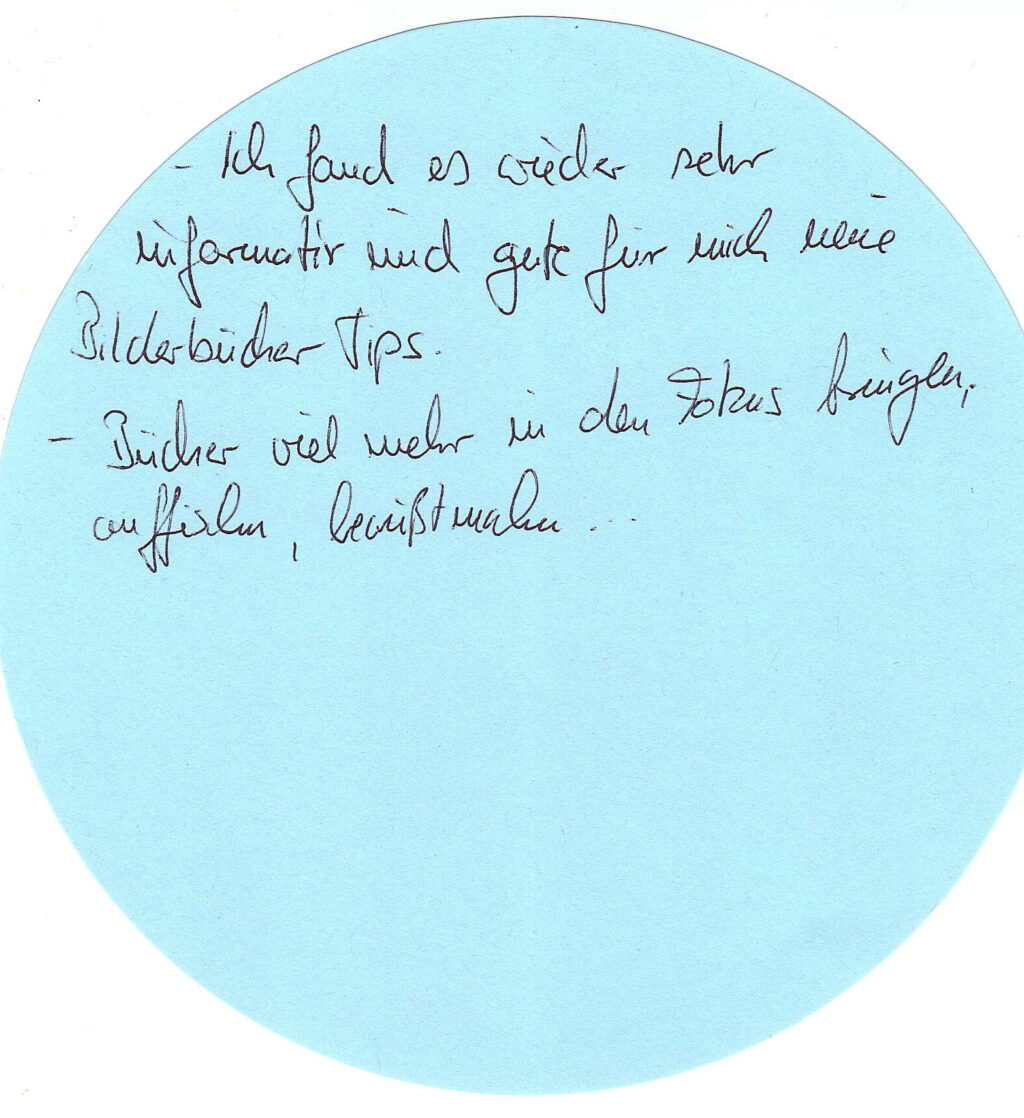 - Ich fand es wieder sehr
informativ und gute für mich neue
Bilderbücher Tips.
- Bücher viel mehr in den Fokus bringen,
, bewußtmachen ...